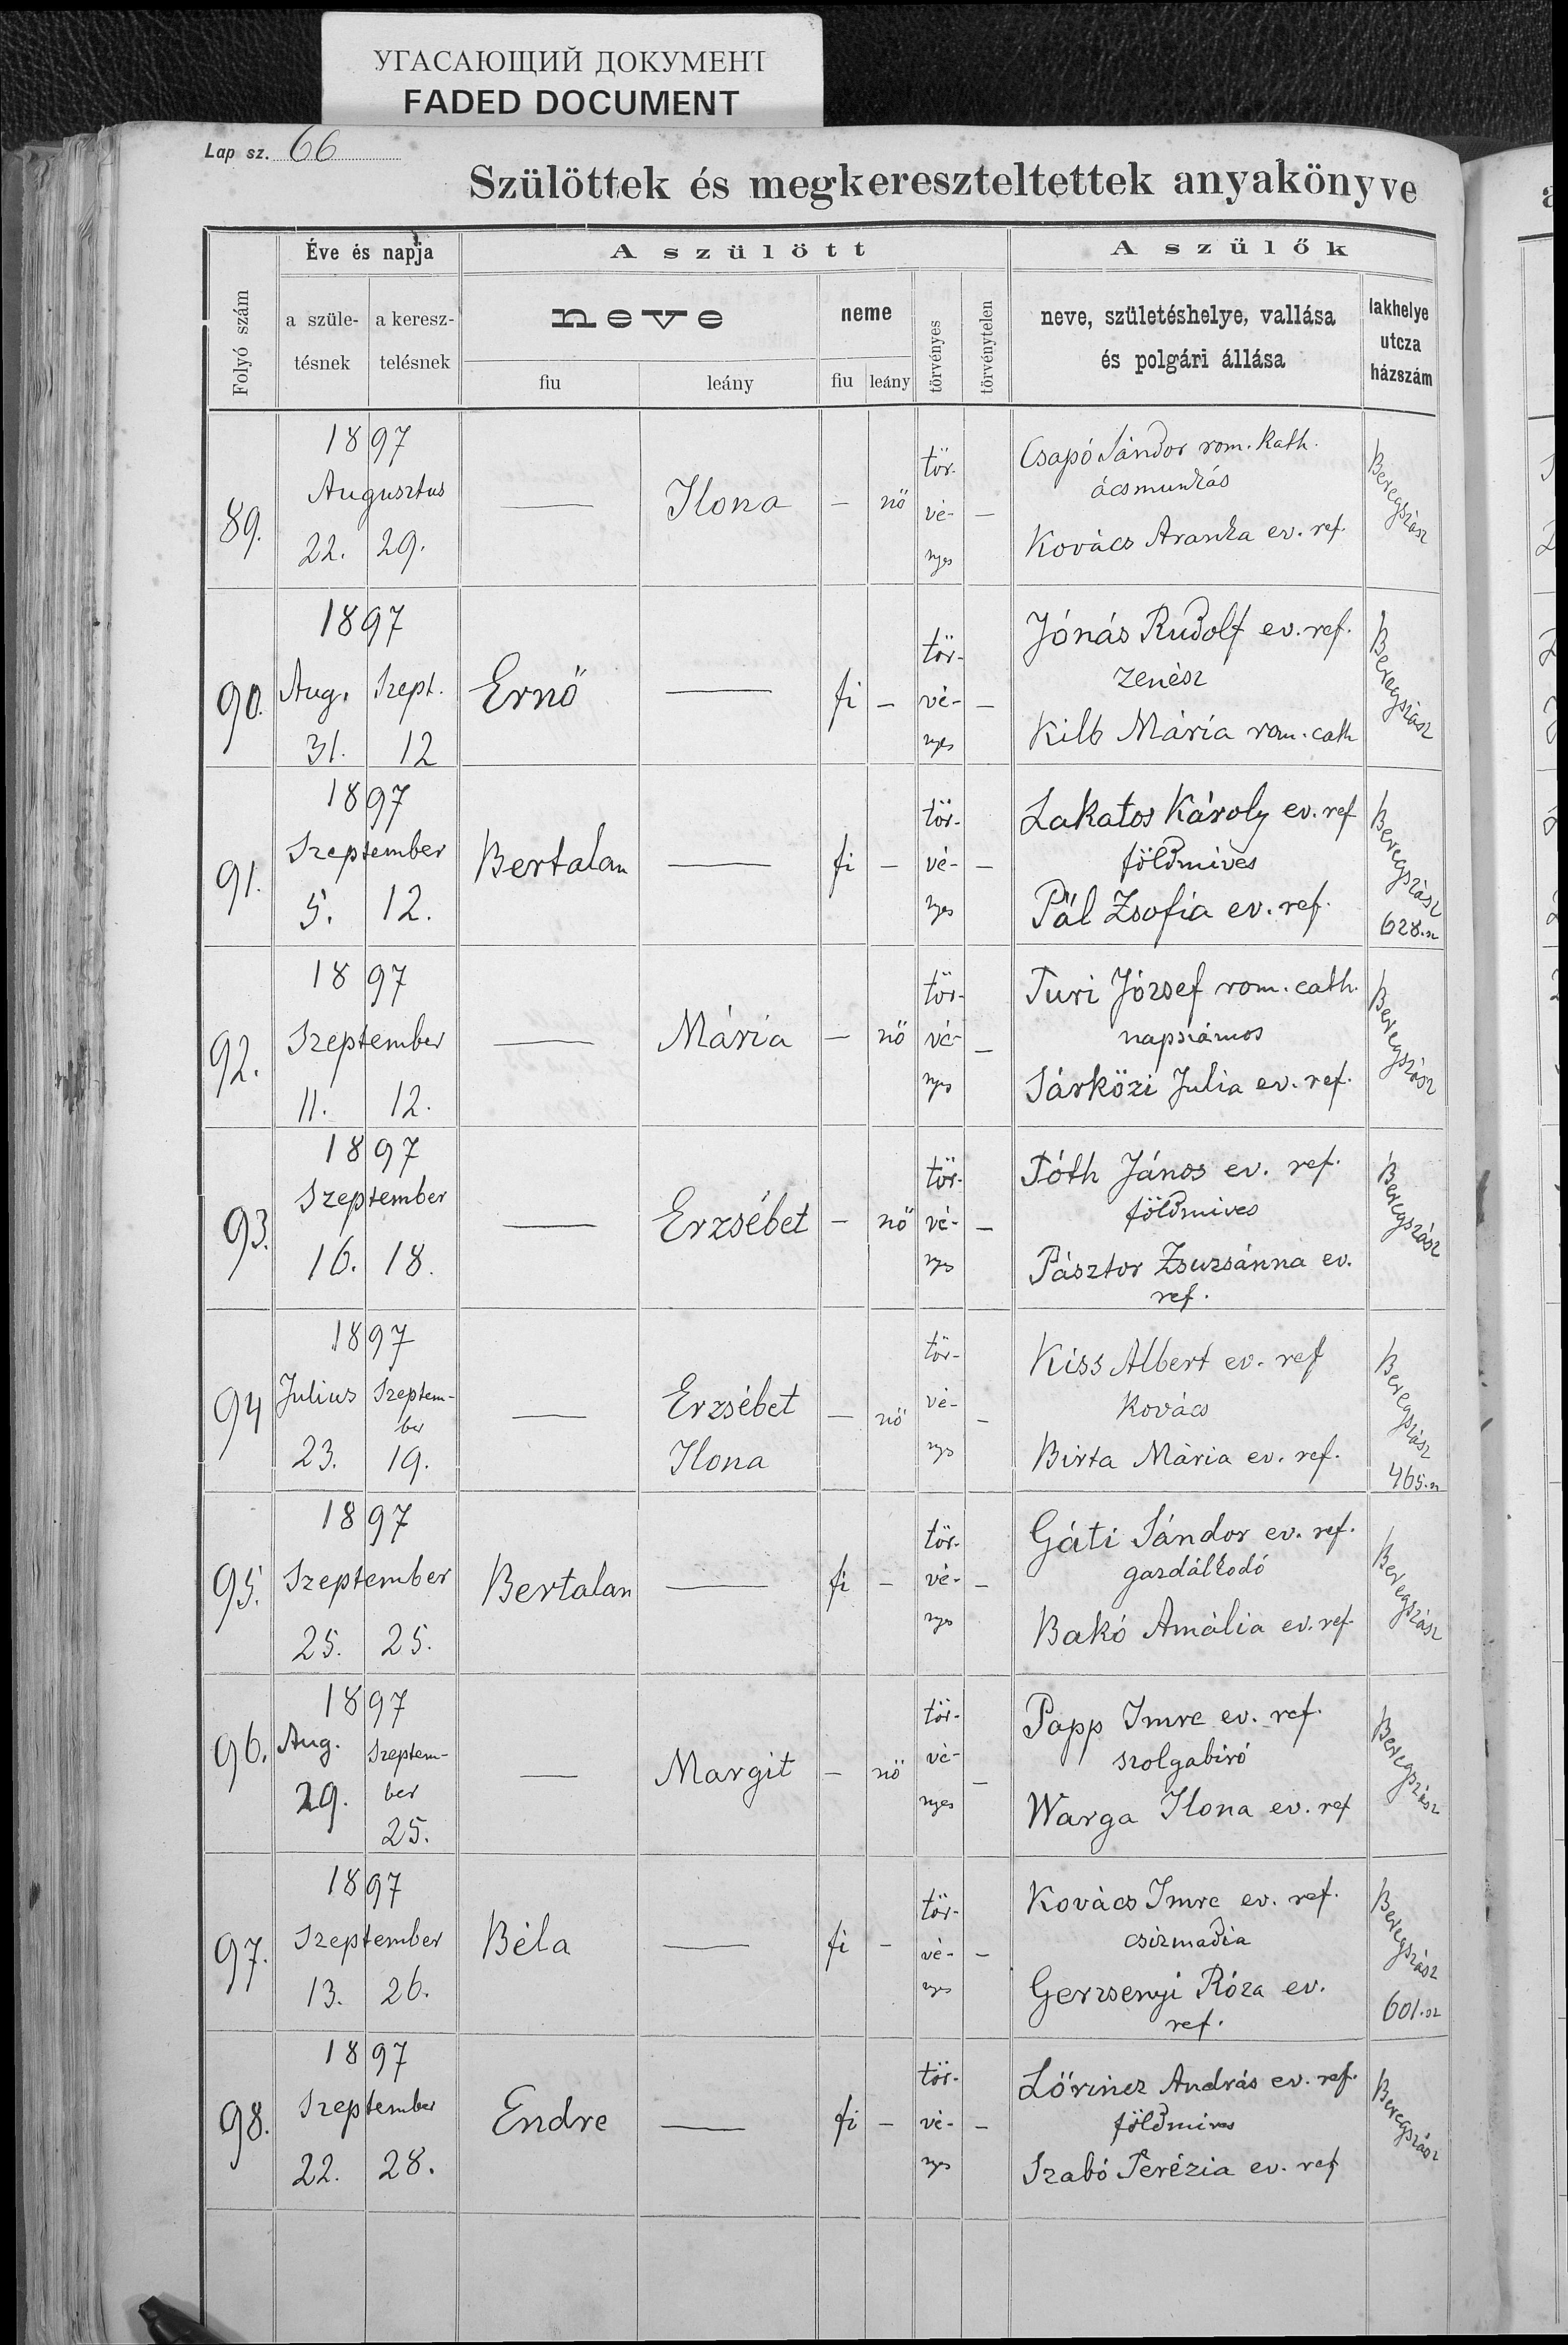 УГАСАЮЩИЙ ДОКУМЕНТ
FADED DOCUMENT
Lap sz. 66
Szülöttek és megkereszteltettek anyakönyve
Folyó szám
Éve és napja
a szüle-
tésnek
a keresz-
telésnek
A szülött
neve
fiu
leány
neme
fiu
leány
törvényes
törvénytelen
A szülők
neve, születéshelye, vallása
és polgári állása
lakhelye
utcza
házszám
89.
1897
Augusztus
22. 29.
—
Ilona
— nő
tör-
vé-
nyes
—
Csapó Sándor rom. Kath.
ácsmunkás
Kovács Aranka ev. ref.
Beregszász
90.
1897
Aug. Szept.
31. 12
Ernő
—
fi —
tör-
vé-
nyes
—
Jónás Rudolf ev. ref.
zenész
Kilb Mária rom. cath
Beregszász
91.
1897
Szeptember
5. 12.
Bertalan
—
fi —
tör-
vé-
nyes
—
Lakatos Károly ev. ref
földmives
Pál Zsofia ev. ref.
Beregszász
628.sz
92.
1897
Szeptember
11. 12.
—
Mária
— nő
tör-
vé-
nyes
—
Turi József rom. cath.
napszámos
Sárközi Julia ev. ref.
Beregszász
93.
1897
Szeptember
16. 18.
—
Erzsébet
— nő
tör-
vé-
nyes
—
Tóth János ev. ref.
földmives
Pásztor Zsuzsánna ev.
ref.
Beregszász
94
1897
Julius Szeptem-
ber
23. 19.
—
Erzsébet
Ilona
— nő
tör-
vé-
nyes
—
Kiss Albert ev. ref
Kovács
Birta Mária ev. ref.
Beregszász
465.sz
95.
1897
Szeptember
25. 25.
Bertalan
—
fi —
tör-
vé-
nyes
—
Gáti Sándor ev. ref.
gazdálkodó
Bakó Amália ev. ref.
Beregszász
96.
1897
Aug. Szeptem-
29. ber
25.
—
Margit
— nő
tör-
vé-
nyes
—
Papp Imre ev. ref.
szolgabiró
Warga Ilona ev. ref
Beregszász
97.
1897
Szeptember
13. 26.
Béla
—
fi —
tör-
vé-
nyes
—
Kovács Imre ev. ref.
csizmadia
Gerzsenyi Róza ev.
ref.
Beregszász
601.sz
98.
1897
Szeptember
22. 28.
Endre
—
fi —
tör-
vé-
nyes
—
Lőrincz András ev. ref.
földmives
Szabó Terézia ev. ref
Beregszász